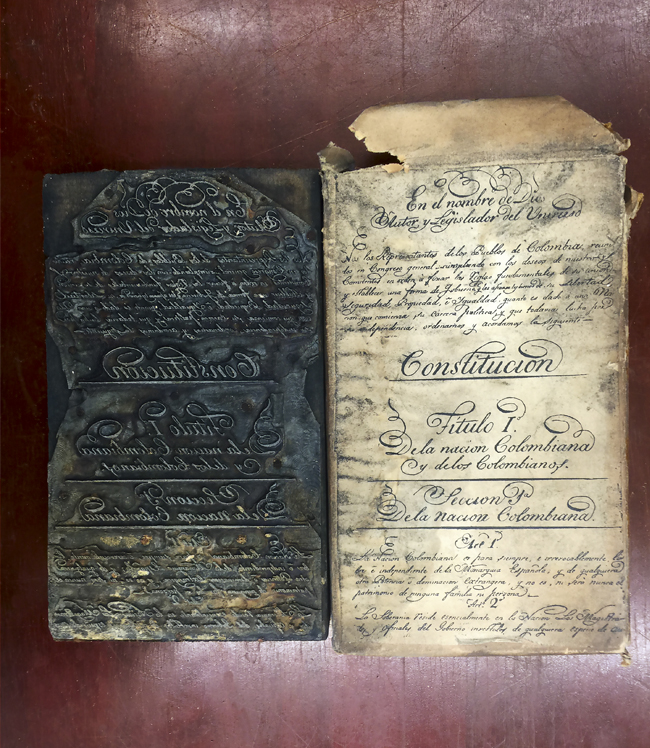 En el nombre de Dios
Autor y Legislador del Universo
Nos los Representantes de los Pueblos de Colombia, reuni
dos en Congreso general, cumpliendo con los deseos de nuestros
Comitentes en orden á fixar las reglas fundamentales de su union
y establecer una forma de Gobierno q. les afianze los bienes de su Libertad
Seguridad, Propiedad, é Igualdad, quanto es dado á una
cion que comienza su carrera politica, y que todavia lucha por
su independencia, ordenamos y acordamos la siguiente
Constitucion
Titulo 1º
De la nacion Colombiana
y de los Colombianos.
Seccion 1ª
De la nacion Colombiana.
Art. 1º
La Nacion Colombiana es para siempre, e irrevocablemente li
bre é independiente de la Monarquia Española, y de qualquiera
otra potencia ó dominacion extrangera; y no es, ni será nunca el
patrimonio de ninguna familia ni persona.
Art. 2º
La Soberania reside esencialmente en la Nacion. Los Magistra
dos y oficiales del Gobierno investidos de qualquiera especie de